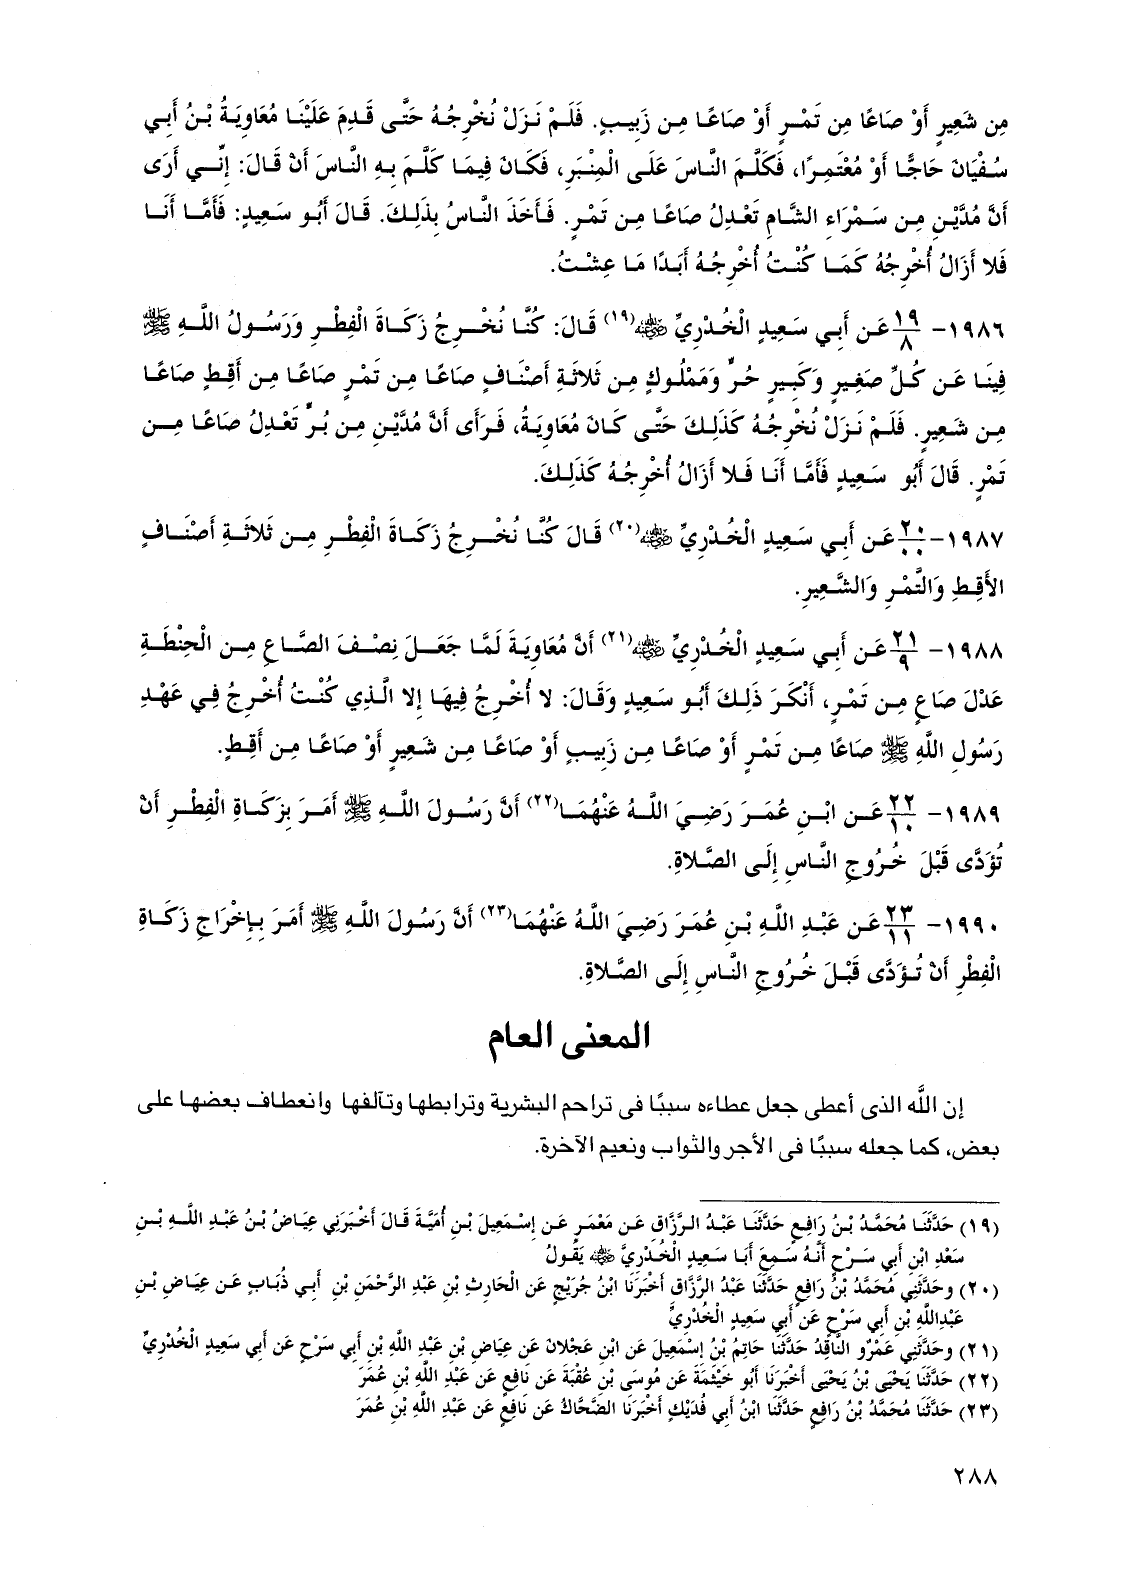 مِن شَعِيرٍ أَوْ صَاعًا مِن تَمْرٍ أَوْ صَاعًا مِن زَبِيبٍ. فَلَمْ نَزَلْ نُخْرِجُهُ حَتَّى قَدِمَ عَلَيْنَا مُعَاوِيَةُ بْنُ أَبِي
سُفْيَانَ حَاجًّا أَوْ مُعْتَمِرًا، فَكَلَّمَ النَّاسَ عَلَى الْمِنْبَرِ، فَكَانَ فِيمَا كَلَّمَ بِهِ النَّاسَ أَنْ قَالَ: إِنِّي أَرَى
أَنَّ مُدَّيْنِ مِن سَمْرَاءِ الشَّامِ تَعْدِلُ صَاعًا مِن تَمْرٍ. فَأَخَذَ النَّاسُ بِذَلِكَ. قَالَ أَبُو سَعِيدٍ: فَأَمَّا أَنَا
فَلا أَزَالُ أُخْرِجُهُ كَمَا كُنْتُ أُخْرِجُهُ أَبَدًا مَا عِشْتُ.
١٩٨٦- ١٩/٨ عَن أَبِي سَعِيدٍ الْخُدْرِيِّ ﷺ(١٩) قَالَ: كُنَّا نُخْرِجُ زَكَاةَ الْفِطْرِ وَرَسُولُ اللَّهِ ﷺ
فِينَا عَن كُلِّ صَغِيرٍ وَكَبِيرٍ حُرٍّ وَمَمْلُوكٍ مِن ثَلاثَةِ أَصْنَافٍ صَاعًا مِن تَمْرٍ صَاعًا مِن أَقِطٍ صَاعًا
مِن شَعِيرٍ. فَلَمْ نَزَلْ نُخْرِجُهُ كَذَلِكَ حَتَّى كَانَ مُعَاوِيَةُ، فَرَأَى أَنَّ مُدَّيْنِ مِن بُرٍّ تَعْدِلُ صَاعًا مِن
تَمْرٍ. قَالَ أَبُو سَعِيدٍ فَأَمَّا أَنَا فَلا أَزَالُ أُخْرِجُهُ كَذَلِكَ.
١٩٨٧- ٢٠/٠٠ عَن أَبِي سَعِيدٍ الْخُدْرِيِّ ﷺ(٢٠) قَالَ كُنَّا نُخْرِجُ زَكَاةَ الْفِطْرِ مِن ثَلاثَةِ أَصْنَافٍ
الأَقِطِ وَالتَّمْرِ وَالشَّعِيرِ.
١٩٨٨- ٢١/٩ عَن أَبِي سَعِيدٍ الْخُدْرِيِّ ﷺ(٢١) أَنَّ مُعَاوِيَةَ لَمَّا جَعَلَ نِصْفَ الصَّاعِ مِن الْحِنْطَةِ
عَدْلَ صَاعٍ مِن تَمْرٍ، أَنْكَرَ ذَلِكَ أَبُو سَعِيدٍ وَقَالَ: لا أُخْرِجُ فِيهَا إِلا الَّذِي كُنْتُ أُخْرِجُ فِي عَهْدِ
رَسُولِ اللَّهِ ﷺ صَاعًا مِن تَمْرٍ أَوْ صَاعًا مِن زَبِيبٍ أَوْ صَاعًا مِن شَعِيرٍ أَوْ صَاعًا مِن أَقِطٍ.
١٩٨٩- ٢٢/١٠ عَن ابْنِ عُمَرَ رَضِيَ اللَّهُ عَنْهُمَا(٢٢) أَنَّ رَسُولَ اللَّهِ ﷺ أَمَرَ بِزَكَاةِ الْفِطْرِ أَنْ
تُؤَدَّى قَبْلَ خُرُوجِ النَّاسِ إِلَى الصَّلاةِ.
١٩٩٠- ٢٣/١١ عَن عَبْدِ اللَّهِ بْنِ عُمَرَ رَضِيَ اللَّهُ عَنْهُمَا(٢٣) أَنَّ رَسُولَ اللَّهِ ﷺ أَمَرَ بِإِخْرَاجِ زَكَاةِ
الْفِطْرِ أَنْ تُؤَدَّى قَبْلَ خُرُوجِ النَّاسِ إِلَى الصَّلاةِ.
المعنى العام
إن اللَّه الذى أعطى جعل عطاءه سببًا فى تراحم البشرية وترابطها وتآلفها وانعطاف بعضها على
بعض، كما جعله سببًا فى الأجر والثواب ونعيم الآخرة.
(١٩) حَدَّثَنَا مُحَمَّدُ بْنُ رَافِعٍ حَدَّثَنَا عَبْدُ الرَّزَّاقِ عَن مَعْمَرٍ عَن إِسْمَعِيلَ بْنِ أُمَيَّةَ قَالَ أَخْبَرَنِي عِيَاضُ بْنُ عَبْدِ اللَّهِ بْنِ
سَعْدِ ابْنِ أَبِي سَرْحٍ أَنَّهُ سَمِعَ أَبَا سَعِيدٍ الْخُدْرِيَّ ﷺ يَقُولُ
(٢٠) وحَدَّثَنِي مُحَمَّدُ بْنُ رَافِعٍ حَدَّثَنَا عَبْدُ الرَّزَّاقِ أَخْبَرَنَا ابْنُ جُرَيْجٍ عَن الْحَارِثِ بْنِ عَبْدِ الرَّحْمَنِ بْنِ أَبِي ذُبَابٍ عَن عِيَاضِ بْنِ
عَبْدِاللَّهِ بْنِ أَبِي سَرْحٍ عَن أَبِي سَعِيدٍ الْخُدْرِيَّ
(٢١) وحَدَّثَنِي عَمْرٌو النَّاقِدُ حَدَّثَنَا حَاتِمُ بْنُ إِسْمَعِيلَ عَن ابْنِ عَجْلانَ عَن عِيَاضِ بْنِ عَبْدِ اللَّهِ بْنِ أَبِي سَرْحٍ عَن أَبِي سَعِيدٍ الْخُدْرِيِّ
(٢٢) حَدَّثَنَا يَحْيَى بْنُ يَحْيَى أَخْبَرَنَا أَبُو خَيْثَمَةَ عَن مُوسَى بْنِ عُقْبَةَ عَن نَافِعٍ عَن عَبْدِ اللَّهِ بْنِ عُمَرَ
(٢٣) حَدَّثَنَا مُحَمَّدُ بْنُ رَافِعٍ حَدَّثَنَا ابْنُ أَبِي فُدَيْكٍ أَخْبَرَنَا الضَّحَّاكُ عَن نَافِعٍ عَن عَبْدِ اللَّهِ بْنِ عُمَرَ
٢٨٨